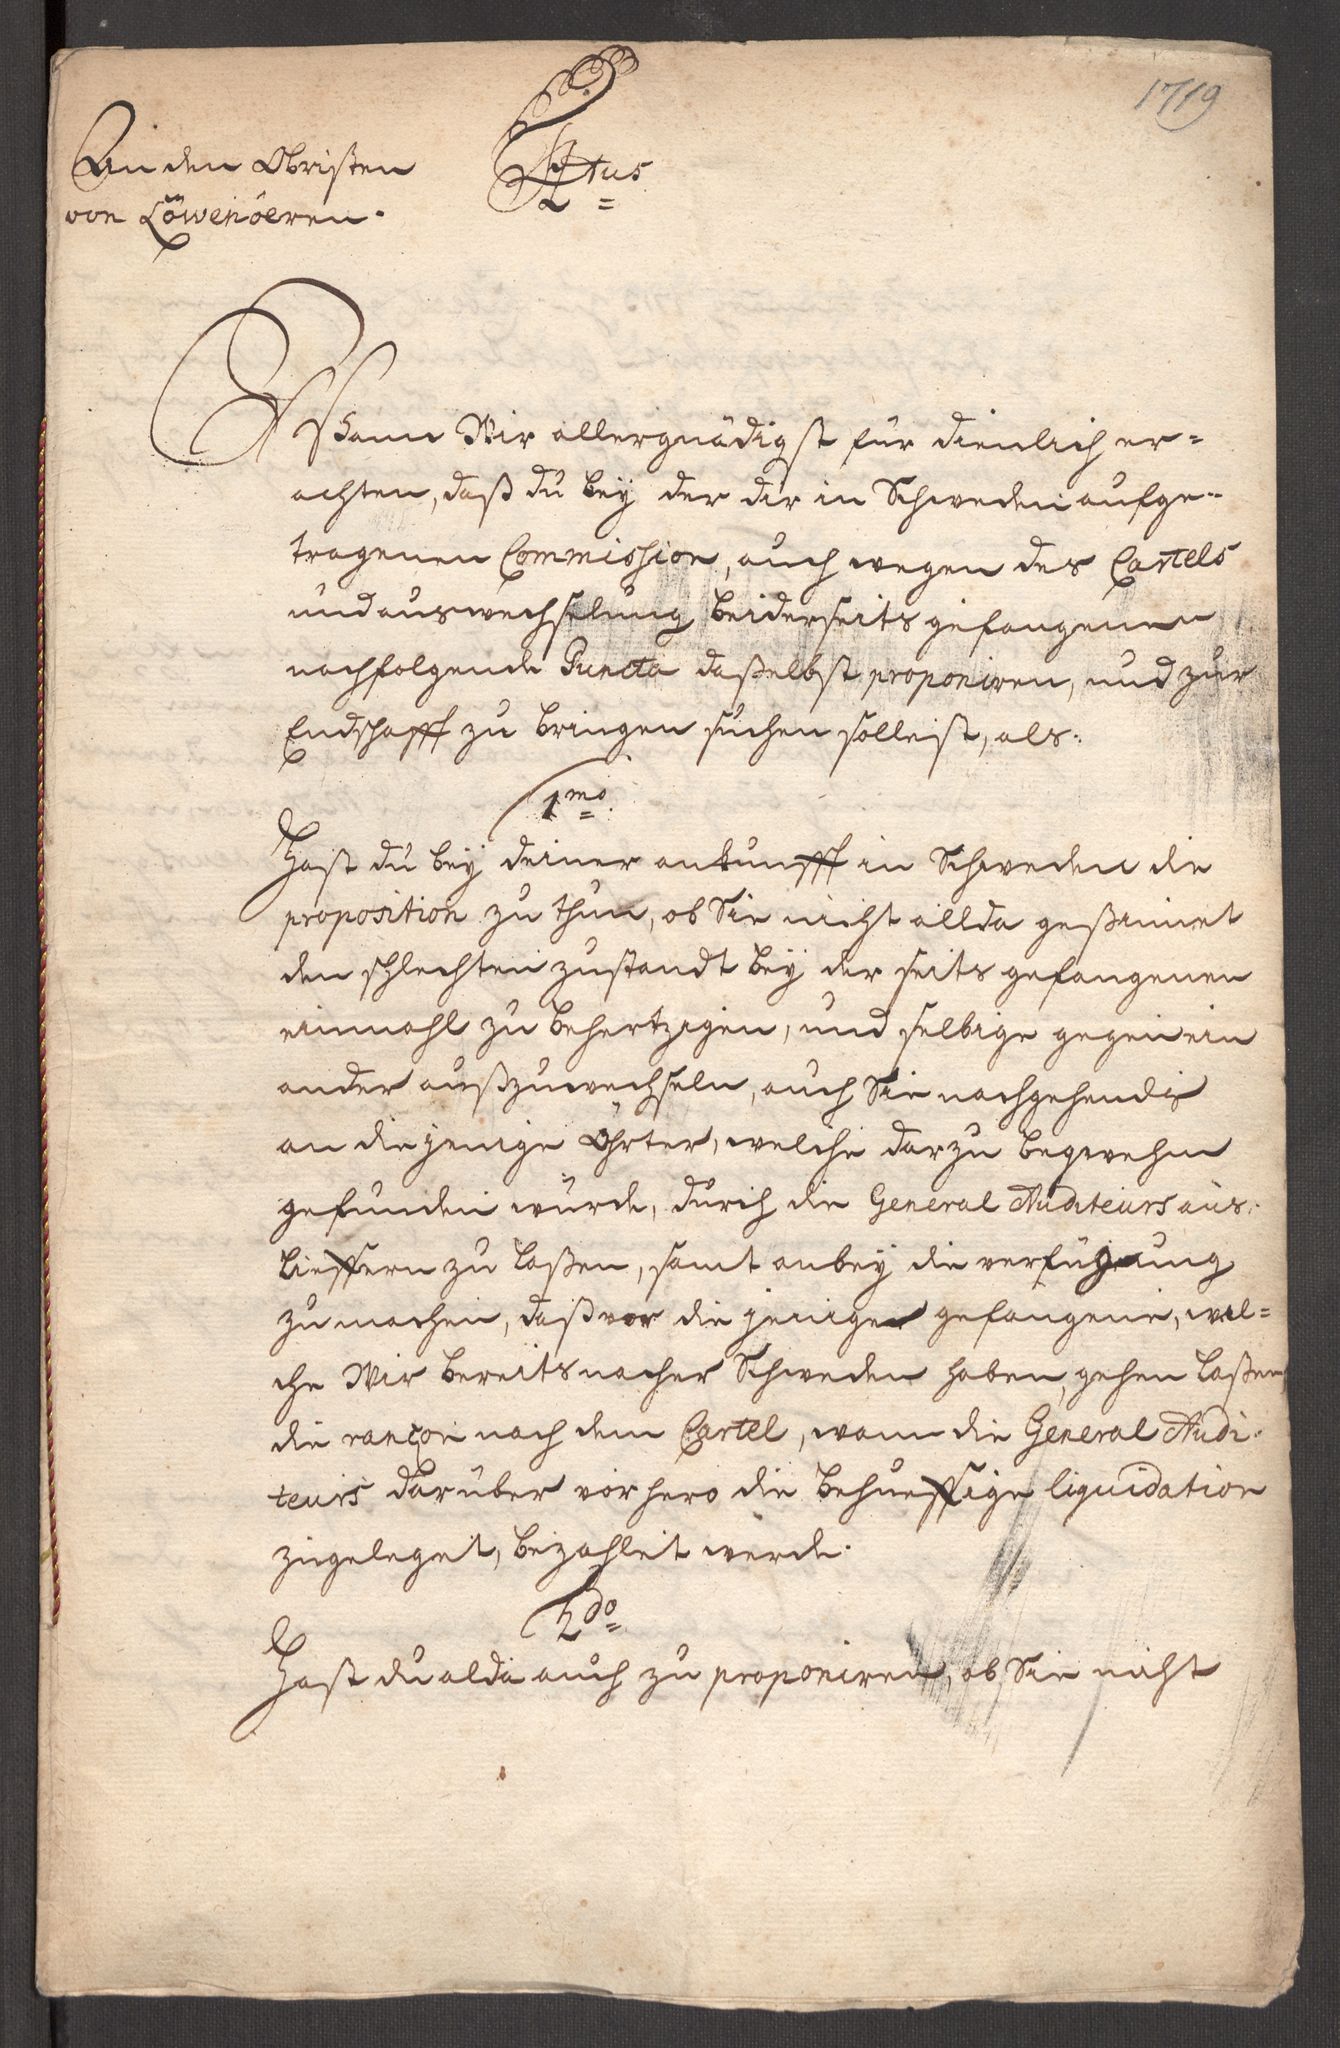 1719
An den Obristen
von Löwenören.
Ttus
Wann Wir allergnädigst für dienlich er-
achten, daß du bey der dir in Schweden aufge-
tragenen Commission, auch wegen des Cartels
und auswechselung beiderseits gefangenen
nachfolgende Puncta daßelbst proponiren, und zur
Endschafft zu bringen suchen solleist, als.
1mo
Hast du bey deiner ankunfft in Schweden die
proposition zu thun, ob Sie nicht allda geßinnet
den schlechten zustandt bey der seits gefangenen
einmahl zu behertzigen, und selbige gegen ein
ander außzuwechseln, auch Sie nachgehends
an die jenige Öhrter, welche darzu beqwehm
gefunden würde, durch die General Auditeurs aus-
lieffern zu laßen, samt anbey die verfügung
zu machen, daß vor die jenigen gefangene, wel-
che Wir bereits nacher Schweden haben gehen laßen,
die rançon nach dem Cartel, wann die General Audi-
teurs darüber vorhero die behueffige liquidation
zugeleget, bezahlet werde.
2do
Hast du alda auch zu proponiren, ob Sie nicht